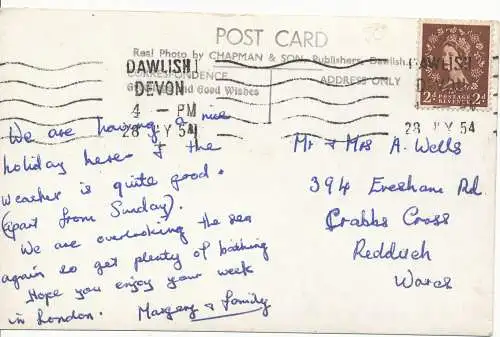 POST CARD
Real Photo by CHAPMAN & SON, Publishers, Dawlish.
CORRESPONDENCE
ADDRESS ONLY
and Good Wishes
DAWLISH
DEVON
4 - PM
28 JY 54
DAWLISH
28 JY 54
2d POSTAGE REVENUE 2d
We are having a nice
holiday here & the
weather is quite good.
(apart from Sunday).
We are overlooking the sea
again so get plenty of bathing
Hope you enjoy your week
in London. Margery & family
Mr & Mrs A. Wells
394 Evesham Rd
Crabbs Cross
Redditch
Worcs